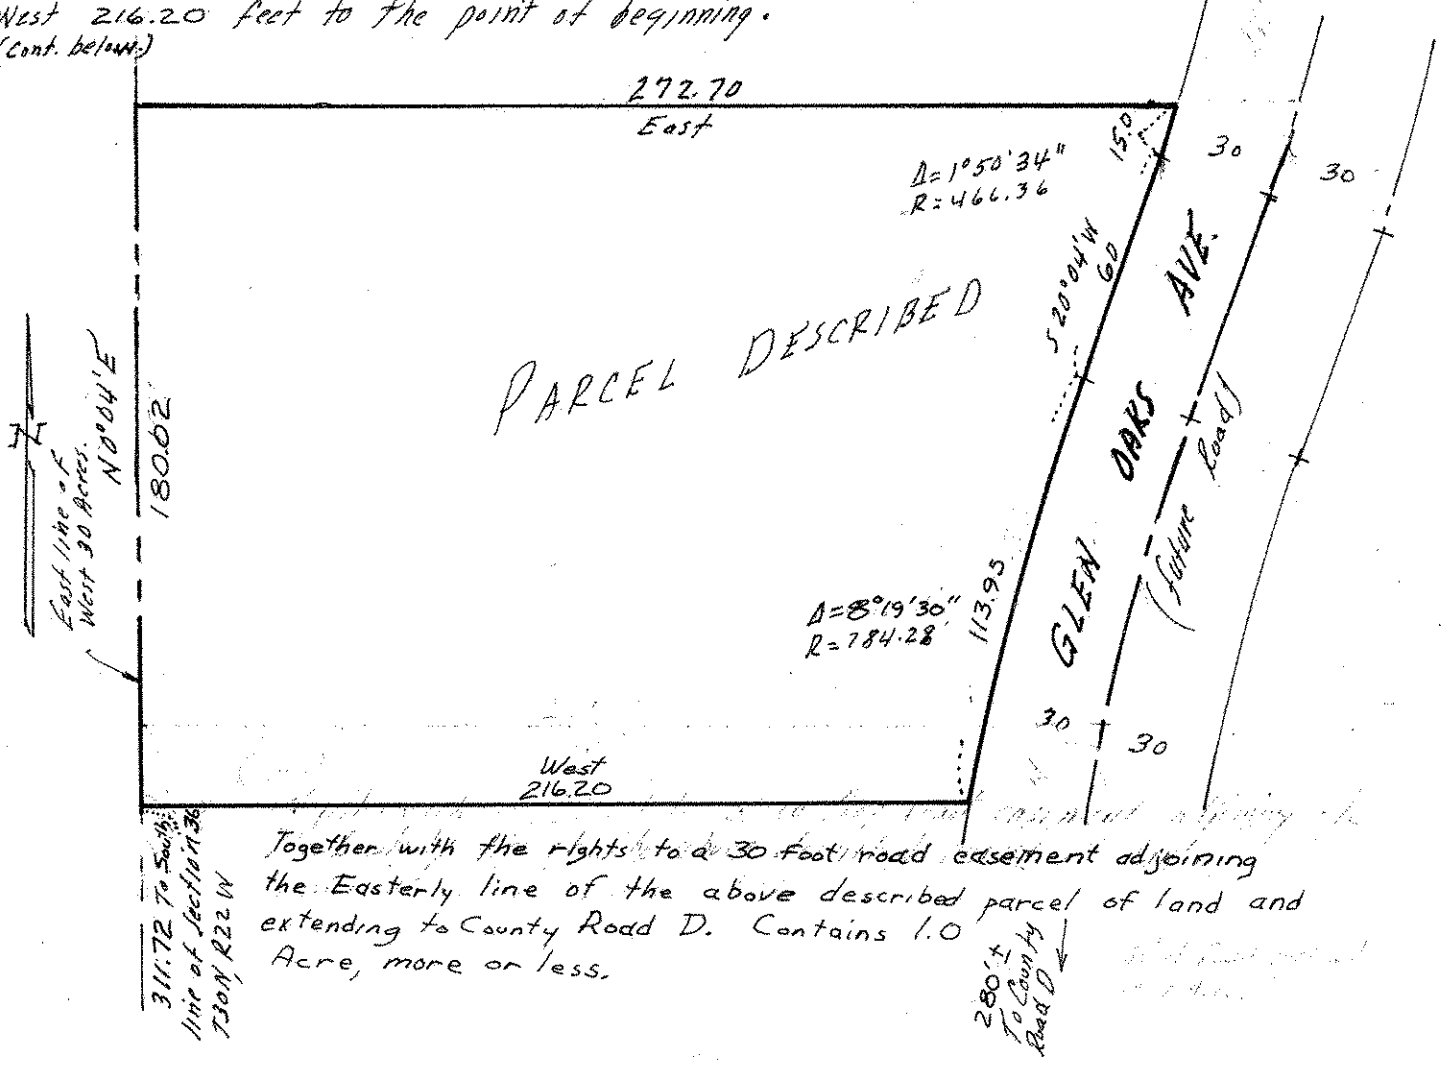 West 216.20 feet to the point of beginning.
(Cont. below)
272.70
East
Δ=1°50'34"
R=466.36
15.0
30
30
S20°04'W
60
PARCEL DESCRIBED
GLEN OAKS AVE.
(future Road)
N
East line of
West 30 Acres.
N0°04'E
180.02
Δ=8°19'30"
R=784.28'
113.95
30
30
West
216.20
311.72 To South
line of Section 36
T30N, R22W
Together with the rights to a 30 foot road easement adjoining
the Easterly line of the above described parcel of land and
extending to County Road D. Contains 1.0
Acre, more or less.
280'±
To County
Road D